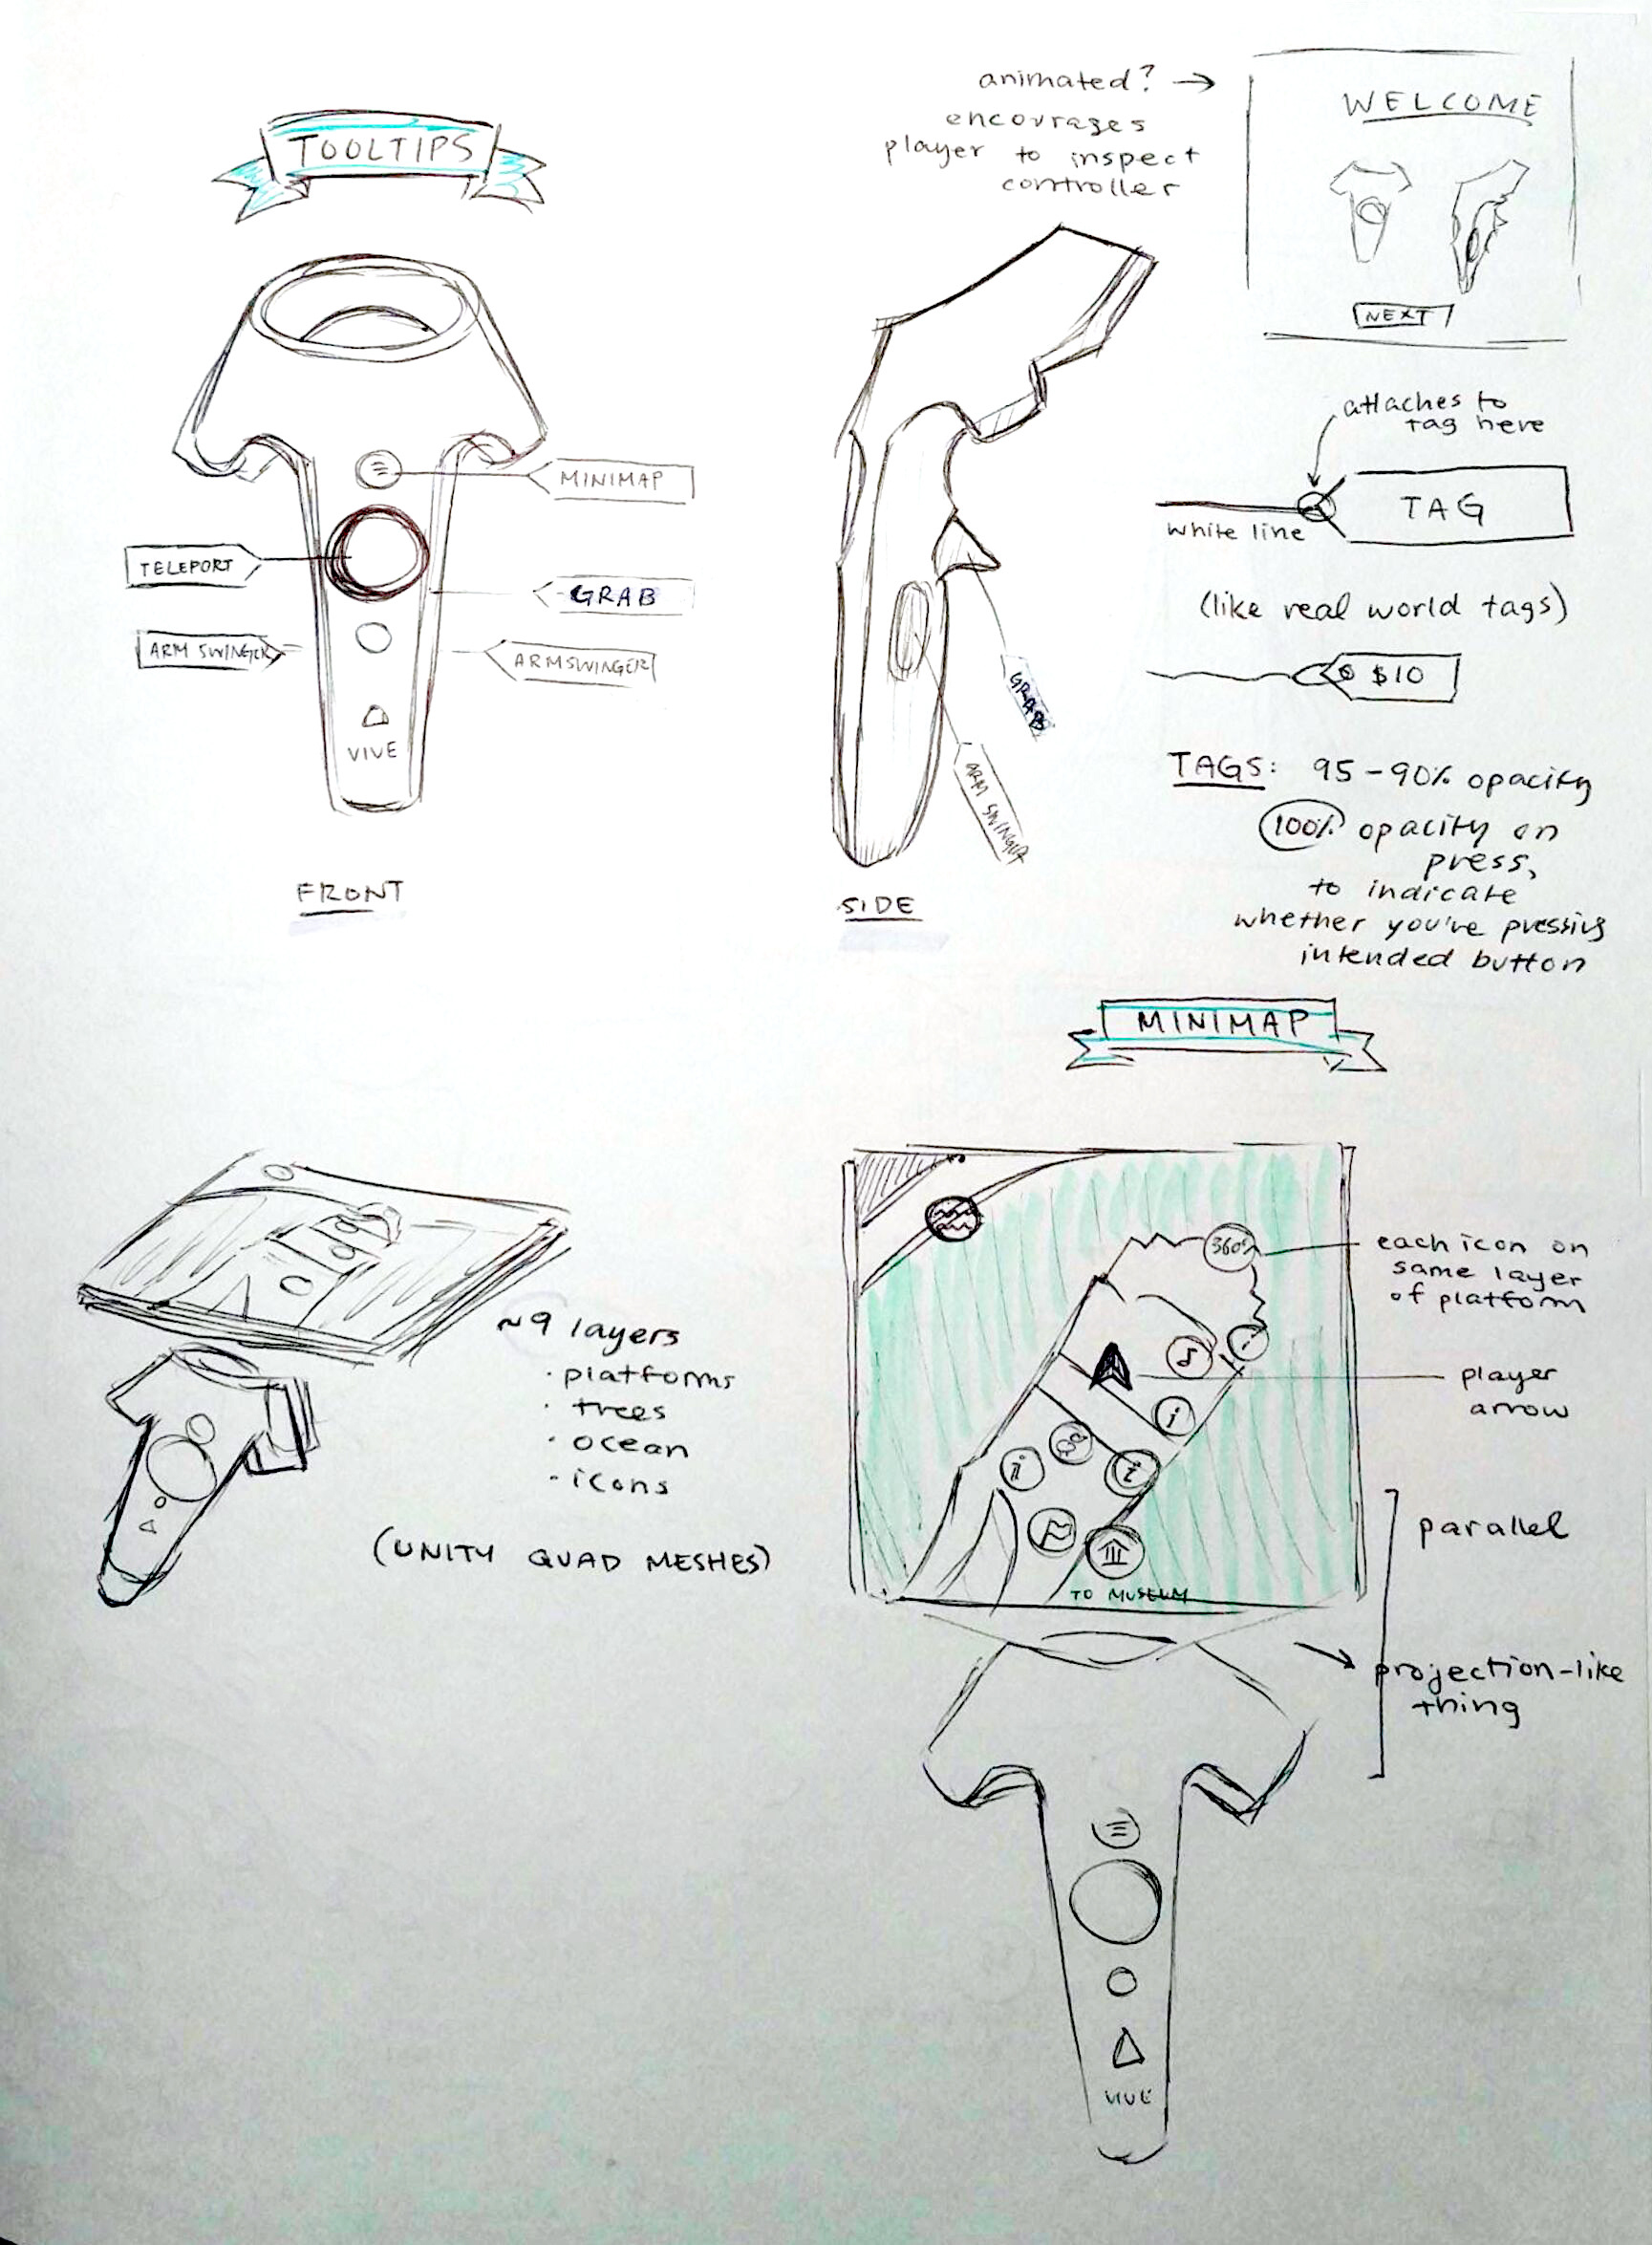 TOOLTIPS
MINIMAP
TELEPORT
GRAB
ARM SWINGER
ARMSWINGER
VIVE
FRONT
animated? →
encourages
player to inspect
controller
WELCOME
NEXT
GRAB
ARM SWINGER
SIDE
attaches to
tag here
TAG
white line
(like real world tags)
$10
TAGS: 95-90% opacity
100% opacity on
press,
to indicate
whether you're pressing
intended button
MINIMAP
~9 layers
· platforms
· trees
· ocean
· icons
(UNITY QUAD MESHES)
360°
each icon on
same layer
of platform
player
arrow
i
i
i
TO MUSEUM
parallel
projection-like
thing
VIVE